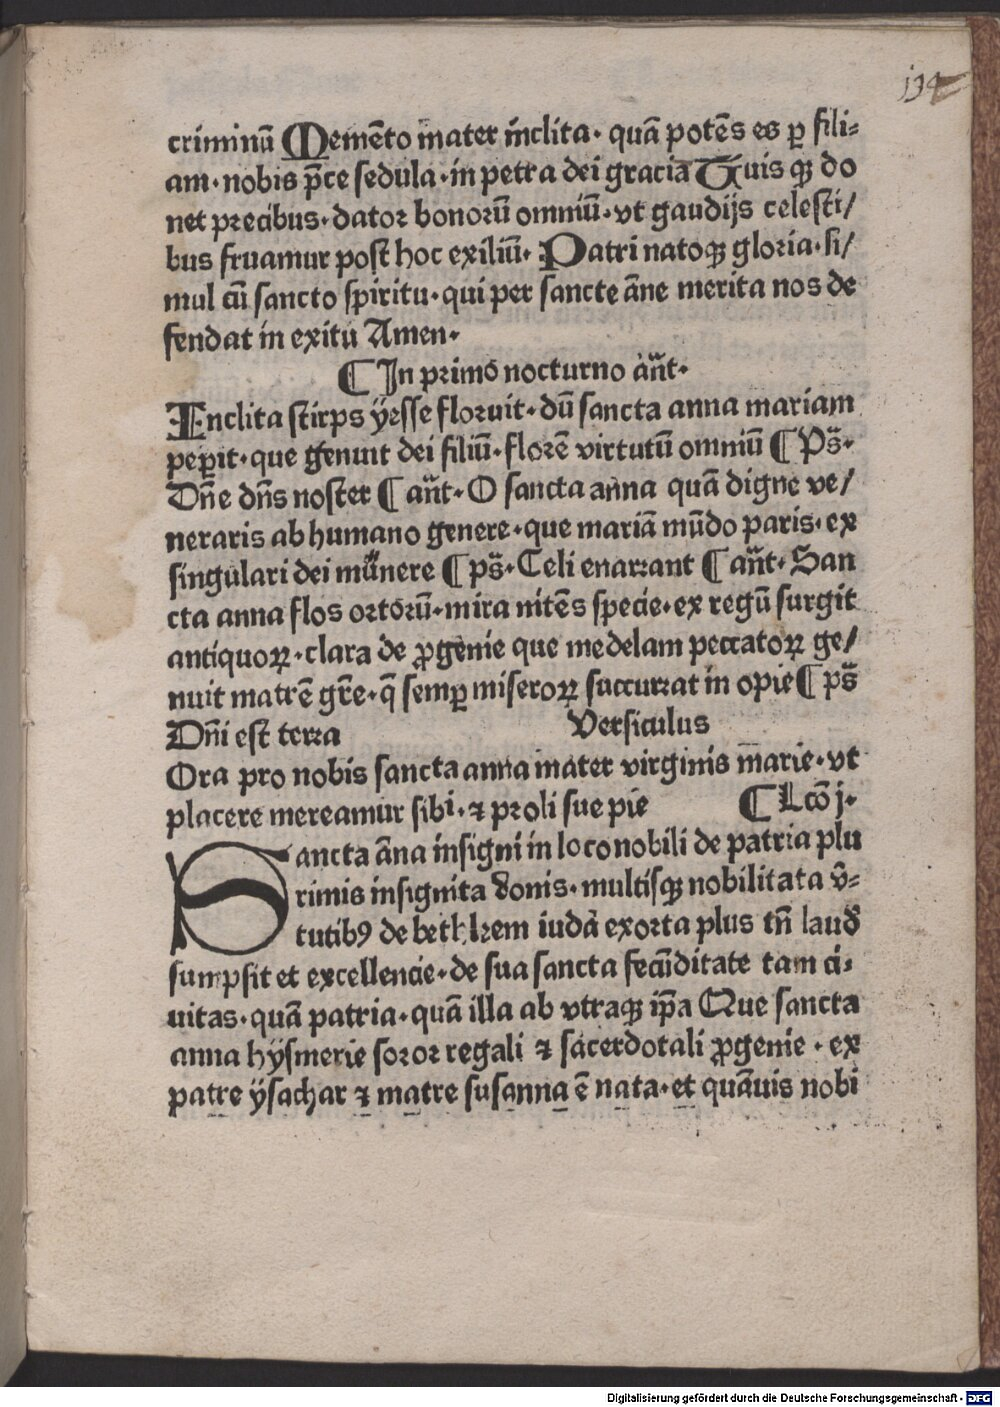 134
criminū Memēto mater inclita · quā potēs es ꝑ fili⸗
am · nobis p̄ce sedula · in petra dei gracia Quis qꝫ do
net precibus · dator bonorū omniū · vt gaudijs celesti/
bus fruamur post hoc exiliū · Patri natoqꝫ gloria · si/
mul cū sancto spiritu · qui per sancte āne merita nos de
fendat in exitu Amen ·
¶ In primo nocturno an̄t ·
Inclita stirps ÿesse floruit · dū sancta anna mariam
peꝑit · que genuit dei filiū · florē virtutū omniū ¶ Ps̄ ·
Dn̄e dn̄s noster ¶ an̄t · O sancta anna quā digne ve/
neraris ab humano genere · que mariā mūdo paris · ex
singulari dei munere ¶ ps̄ · Celi enarrant ¶ an̄t · San
cta anna flos ortorū · mira nitēs specie · ex regū surgit
antiquoꝝ · clara de ꝓgenie que medelam peccatoꝝ ge/
nuit matrē gr̄e · q̄ semꝑ miseroꝝ succurrat in opie ¶ ps̄
Dn̄i est terra Versiculus
Ora pro nobis sancta anna mater virginis marie · vt
placere mereamur sibi · ⁊ proli sue pie ¶ Lcō j ·
Sancta āna insigni in loco nobili de patria plu
rimis insignita donis · multisqꝫ nobilitata v̄⸗
tutibꝯ de bethleem iuda exorta plus tn̄ laud̄
sumpsit et excellencie · de sua sancta fecūditate tam ci⸗
uitas · quā patria · quā illa ab vtraqꝫ ip̄a Que sancta
anna hÿsmerie soror regali ⁊ sacerdotali ꝓgenie · ex
patre ÿsachar ⁊ matre susanna ē nata · et quāuis nobi
Digitalisierung gefördert durch die Deutsche Forschungsgemeinschaft - DFG